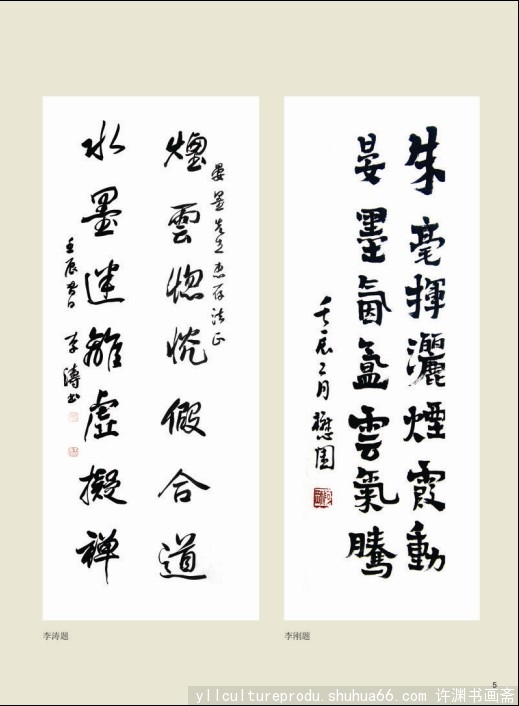 朱毫揮灑煙霞動
晏墨氤氳雲氣騰
壬辰二月
懋園
晏墨先生惠存法正
煙雲惚恍假合道
水墨迷離虛擬禅
壬辰春日 李濤书
李涛题
李刚题
5
yllcultureprodu.shuhua66.com 许渊书画斋